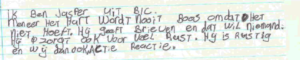 Ik Ben Jasper uit B1C.
Meneer Hart Wordt Nooit Boos omdat Het
Niet Hoeft. Hij geeft Brieven en dat wil Niemand.
Hij zorgt ook voor veel Rust. Hij is Rustig
en wij dan ook Actie Reactie.